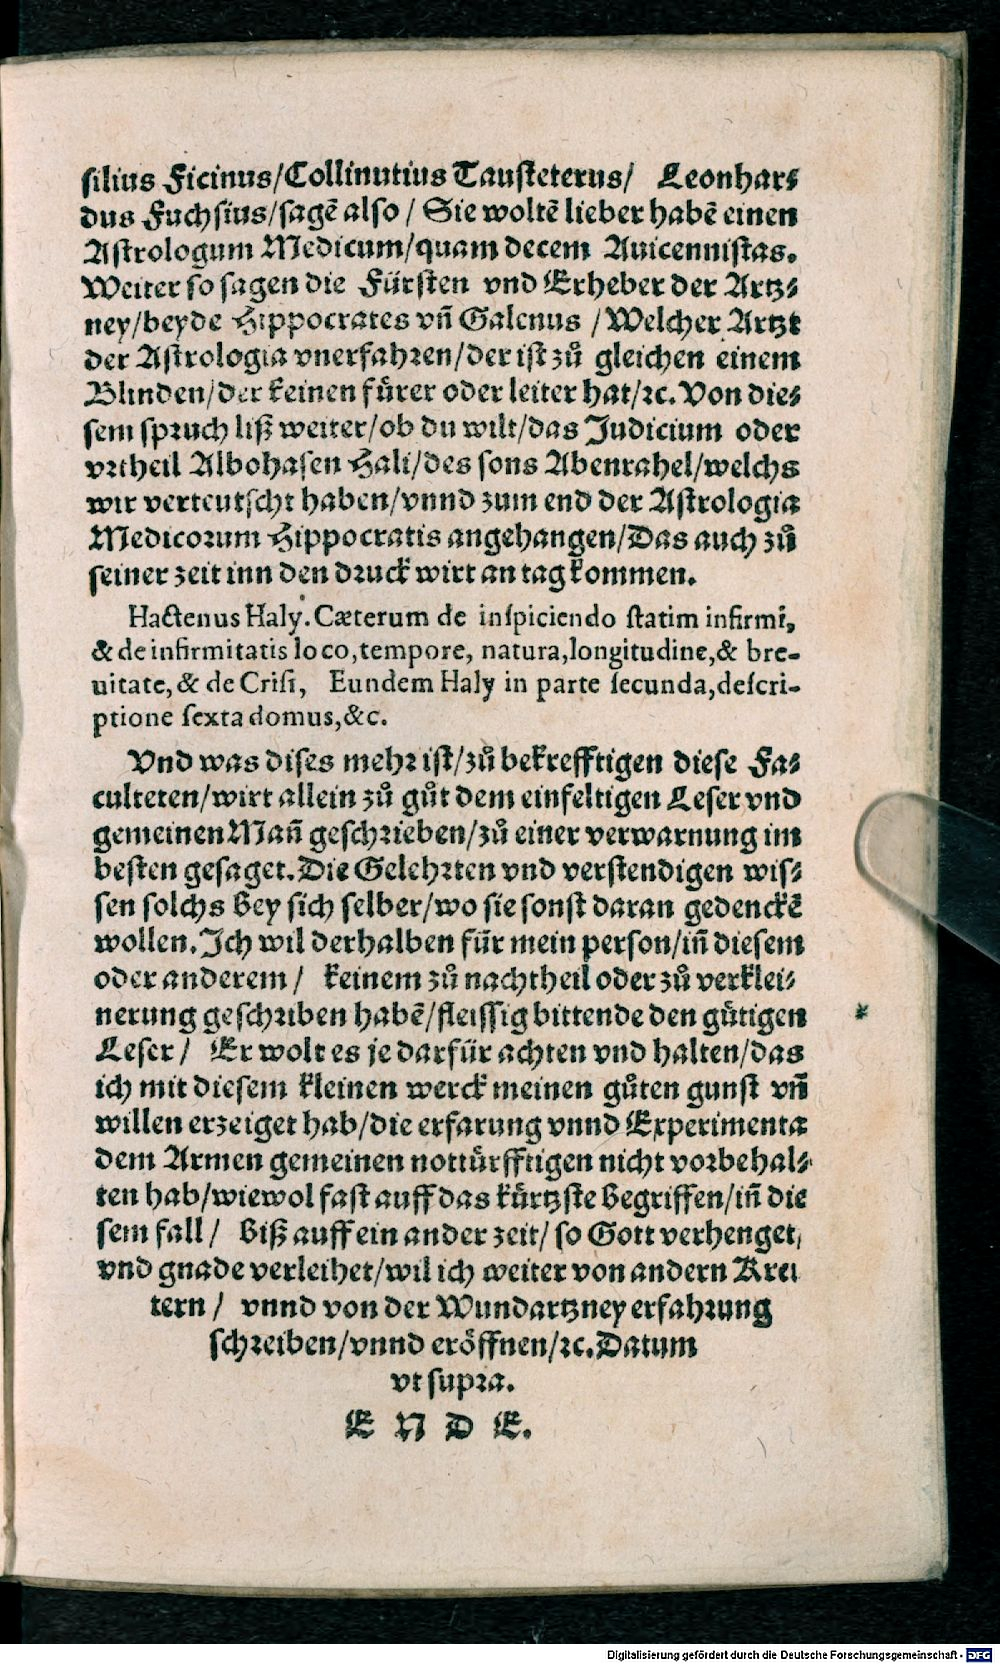 silius Ficinus/Collinutius Tausteterus/ Leonhar⸗
dus Fuchsius/sagẽ also / Sie woltẽ lieber habẽ einen
Astrologum Medicum/quam decem Auicennistas.
Weiter so sagen die Fürsten vnd Erheber der Artz⸗
ney/beyde Hippocrates vñ Galenus /Welcher Artzt
der Astrologia vnerfahren/der ist zů gleichen einem
Blinden/der keinen fürer oder leiter hat/ꝛc. Von die⸗
sem spruch liß weiter/ob du wilt/das Judicium oder
vrtheil Albohasen Hali/des sons Abenrahel/welchs
wir verteutscht haben/vnnd zum end der Astrologia
Medicorum Hippocratis angehangen/Das auch zů
seiner zeit inn den druck wirt an tag kommen.
Hactenus Haly. Cæterum de inspiciendo statim infirmi,
& de infirmitatis loco, tempore, natura, longitudine, & bre-
uitate, & de Crisi, Eundem Haly in parte secunda, descri-
ptione sexta domus, &c.
Vnd was dises mehr ist/zů bekrefftigen diese Fa⸗
culteten/wirt allein zů gůt dem einfeltigen Leser vnd
gemeinen Mañ geschrieben/zů einer verwarnung im
besten gesaget. Die Gelehrten vnd verstendigen wis⸗
sen solchs bey sich selber/wo sie sonst daran gedenckẽ
wollen. Ich wil derhalben für mein person/iñ diesem
oder anderem / keinem zů nachtheil oder zů verklei⸗
nerung geschriben habẽ/fleissig bittende den gütigen
Leser / Er wolt es je darfür achten vnd halten/das
ich mit diesem kleinen werck meinen gůten gunst vñ
willen erzeiget hab/die erfarung vnnd Experimenta
dem Armen gemeinen nottürfftigen nicht vorbehal⸗
ten hab/wiewol fast auff das kürtzste begriffen/iñ die
sem fall / biß auff ein ander zeit/ so Gott verhenget,
vnd gnade verleihet/wil ich weiter von andern Kreu
tern / vnnd von der Wundartzney erfahrung
schreiben/vnnd eröffnen/ꝛc. Datum
vt supra.
E N D E.
Digitalisierung gefördert durch die Deutsche Forschungsgemeinschaft - DFG